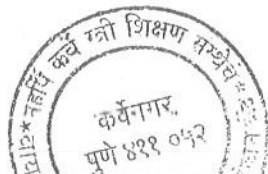 महर्षि कर्वे स्त्री शिक्षण संस्थेचे
कर्वेनगर,
पुणे ४११ ०५२